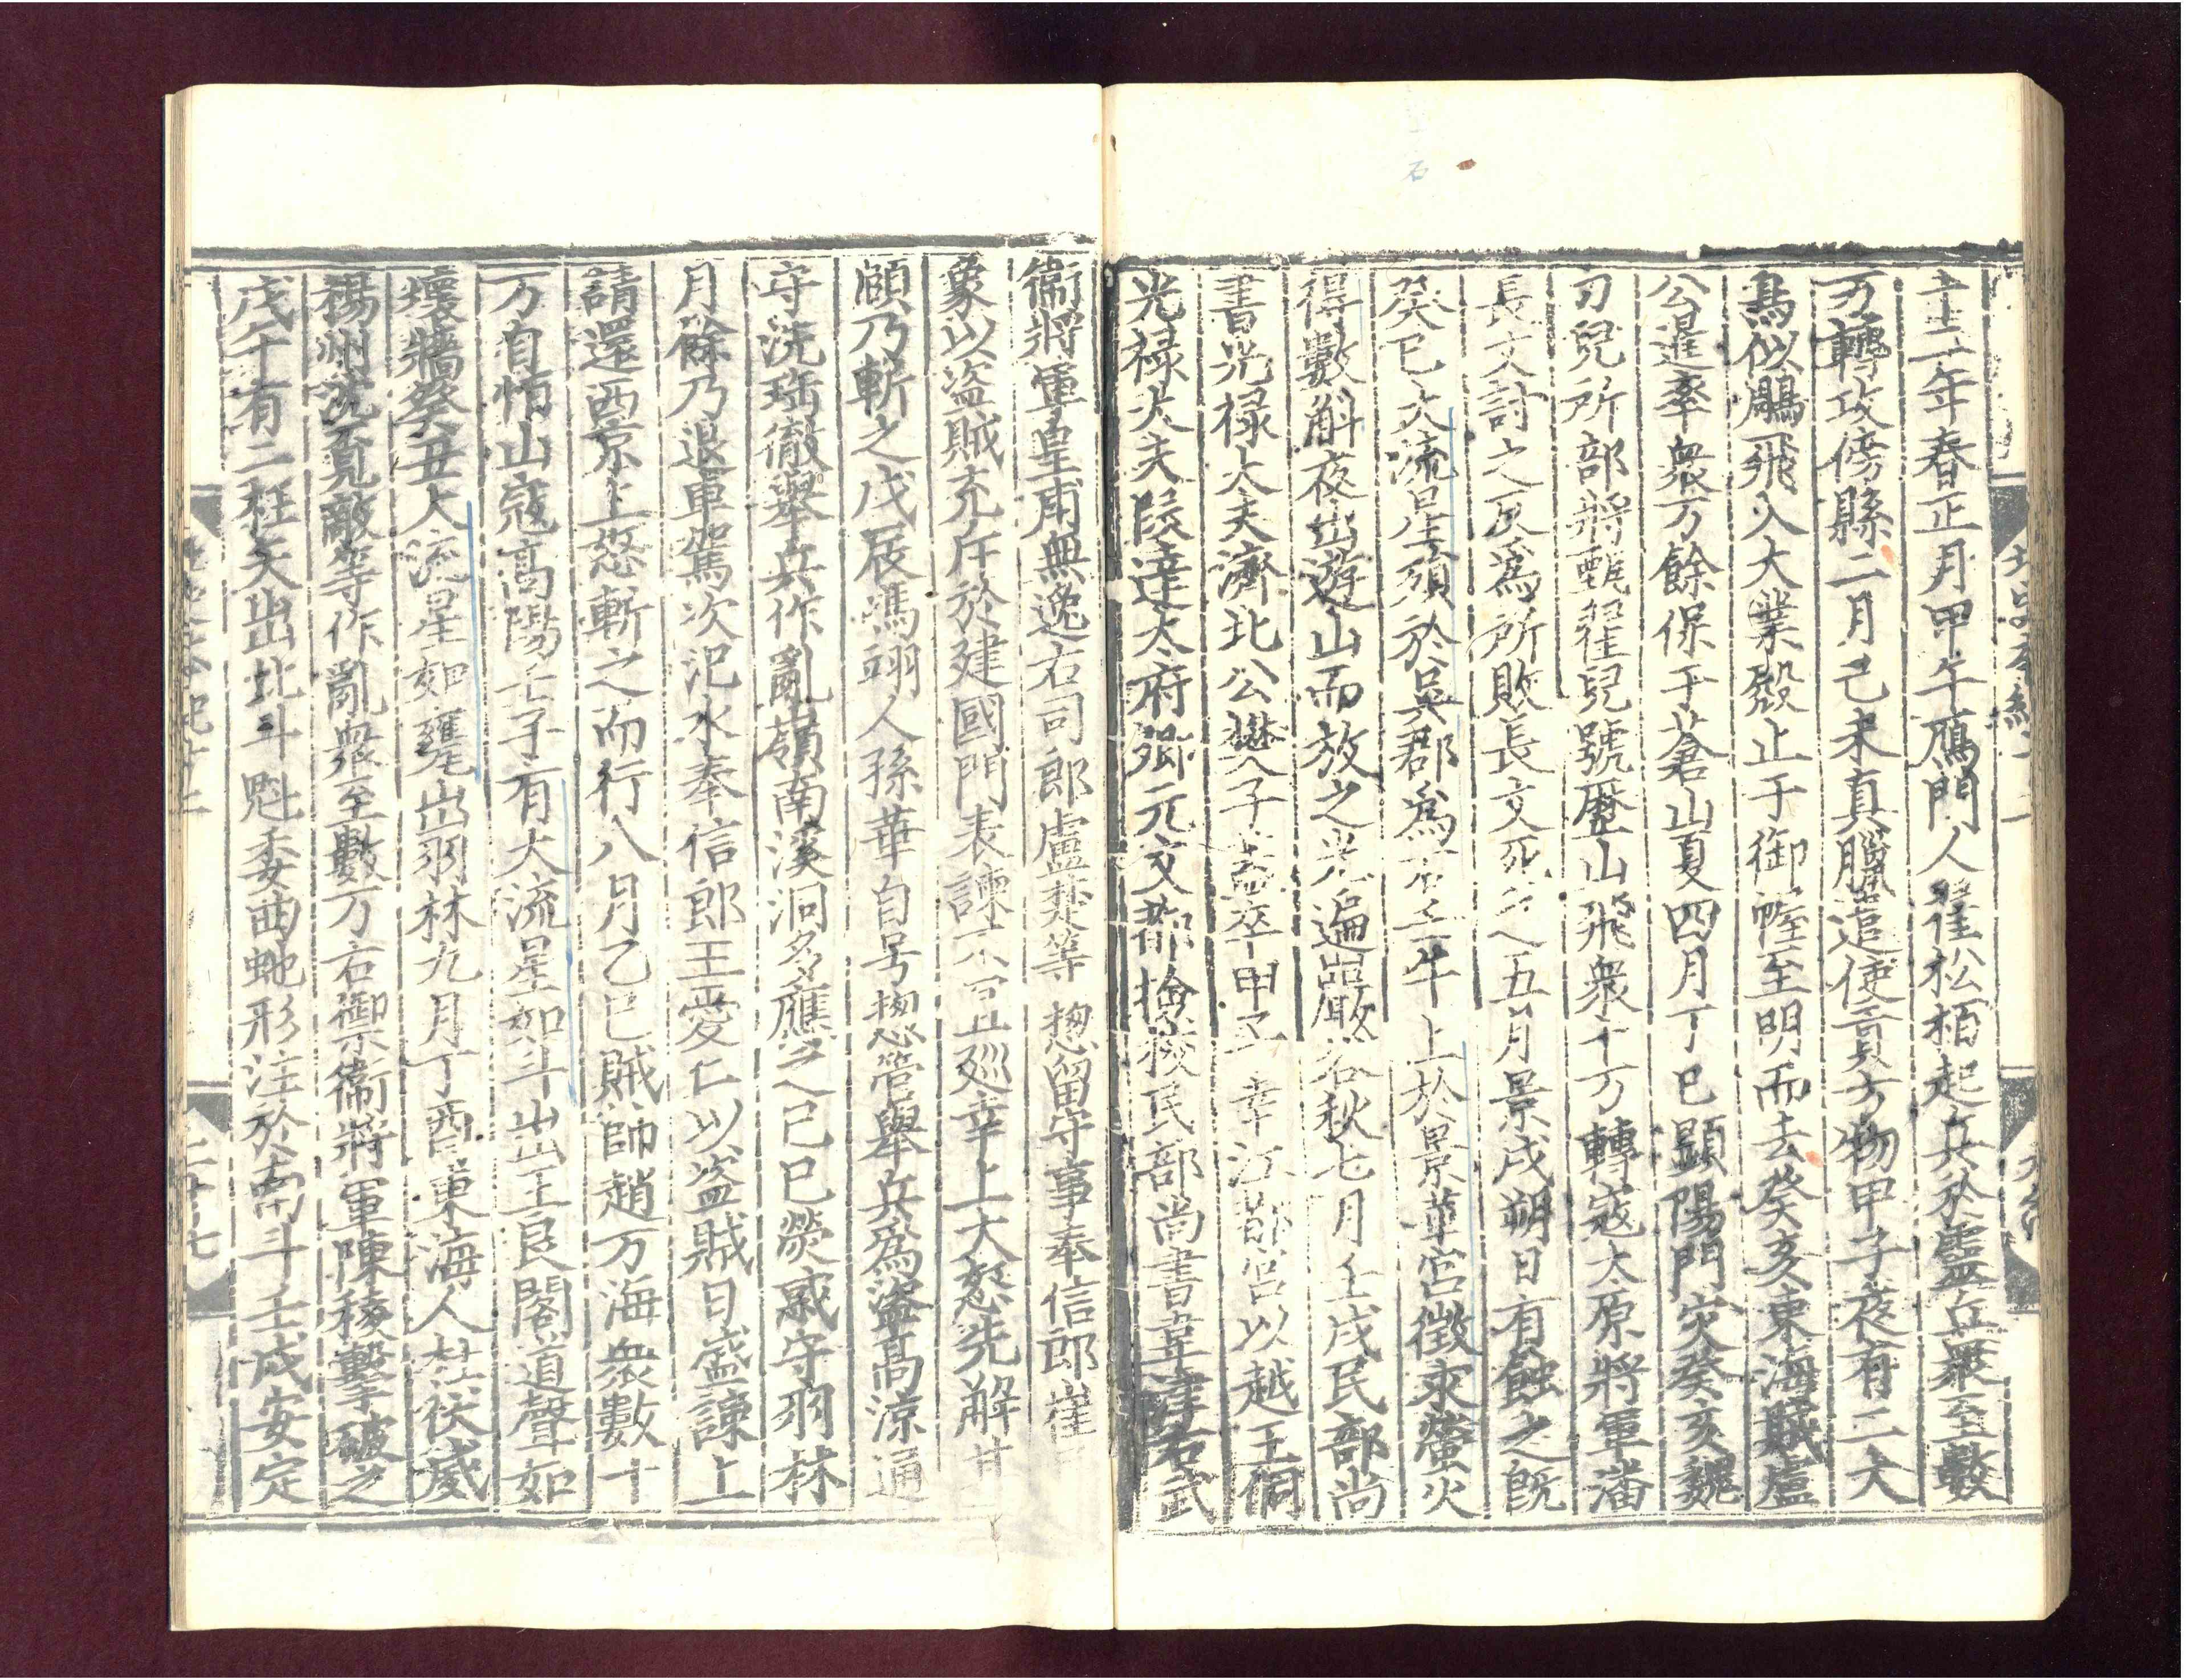 十二年春正月甲午鴈門人翟松栢起兵於靈丘衆至數
万轉攻傍縣二月己未真臘遣使貢方物甲子夜有二大
鳥似鵰飛入大業殿止于御幄至明而去癸亥東海賊盧
公暹率衆万餘保于蒼山夏四月丁巳顯陽門灾癸亥魏
刀兒所部將甄翟兒號歷山飛衆十万轉寇太原將軍潘
長文討之反爲所敗長文死之五月景戌朔日有蝕之旣
癸巳大流星隕於吳郡爲石壬午上於景華宮徵求螢火
得數斛夜出遊山而放之光遍巖谷秋七月壬戌民部尚
書光禄大夫濟北公樊子蓋卒甲子幸江都宮以越王侗
光禄大夫段達太府卿元文都撿挍民部尚書韋津右武
衞將軍皇甫無逸右司郎盧楚等揔留守事奉信郎崔
象以盗賊充斥於建國門表諫不宜廵幸上大怒先解其
頤乃斬之戊辰馮翊人孫華自号揔管舉兵爲盗高涼通
守洗珤徹舉兵作亂嶺南溪洞多應之己巳熒惑守羽林
月餘乃退車駕次汜水奉信郎王愛仁以盗賊日盛諫上
請還西京上怒斬之而行八月乙巳賊帥趙万海衆數十
万自恒山寇高陽壬子有大流星如斗出王良閣道聲如
壞牆癸丑大流星如甕出羽林九月丁酉東海人杜伏威
楊州沈覓敵等作亂衆至數万右禦衞將軍陳稜擊破之
戊午有二枉矢出北斗魁委曲虵形注於南斗壬戌安定